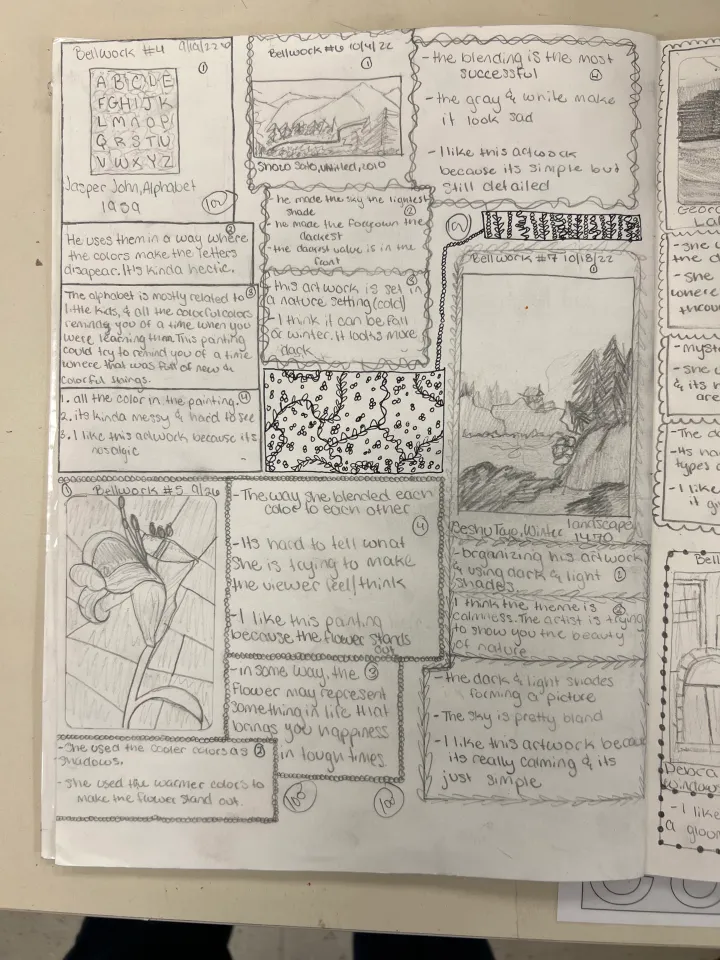 Bellwork #4 9/10/22
①
A B C D E
F G H I J K
L M N O P
Q R S T U
V W X Y Z
Jasper John, Alphabet
1959
100
②
He uses them in a way where
the colors make the letters
disapear. It's kinda hectic.
The alphabet is mostly related to ③
little kids, & all the colorful colors
remind you of a time when you
were learning them. This panting
could try to remind you of a time
where that was full of new &
colorful things.
1. all the color in the painting. ④
2. its kinda messy & hard to see
3. I like this artwork because its
nosalgic
Bellwork #6 10/4/22
①
Untitled, 2010
- he made the sky the lightest
shade ②
- he made the forgrown the
darkest
- the darkest value is in the
front
- this art work is set in ③
a nature setting (cold)
- I think it can be fall
or winter. It looks more
dark
- the blending is the most
successful ④
- the gray & white make
it look sad
- I like this artwork
because its simple but
still detailed
100
Bellwork #7 10/18/22
①
Winter landscape
1470
- organizing his artwork
& using dark & light ②
shades.
I think the theme is ③
calmness. The artist is trying
to show you the beauty
of nature.
- the dark & light shades
forming a picture
- The sky is pretty bland
- I like this artwork because
its really calming & its
just simple
① Bellwork #5 9/26
- She used the cooler colors as ②
shadows.
- she used the warmer colors to
make the flower stand out.
- The way she blended each
color to each other
④
- Its hard to tell what
she is trying to make
the viewer feel/think
- I like this painting
because the flower stands
out
- in some way, the ③
flower may represent
something in life that
brings you happiness
in tough times.
100
100
Georg
La
- she
the d
- she
where
- myst
- she
& its
are
- The d
- Its ha
types
- I like
it g
Bell
Debora
window
- I like
a gloo